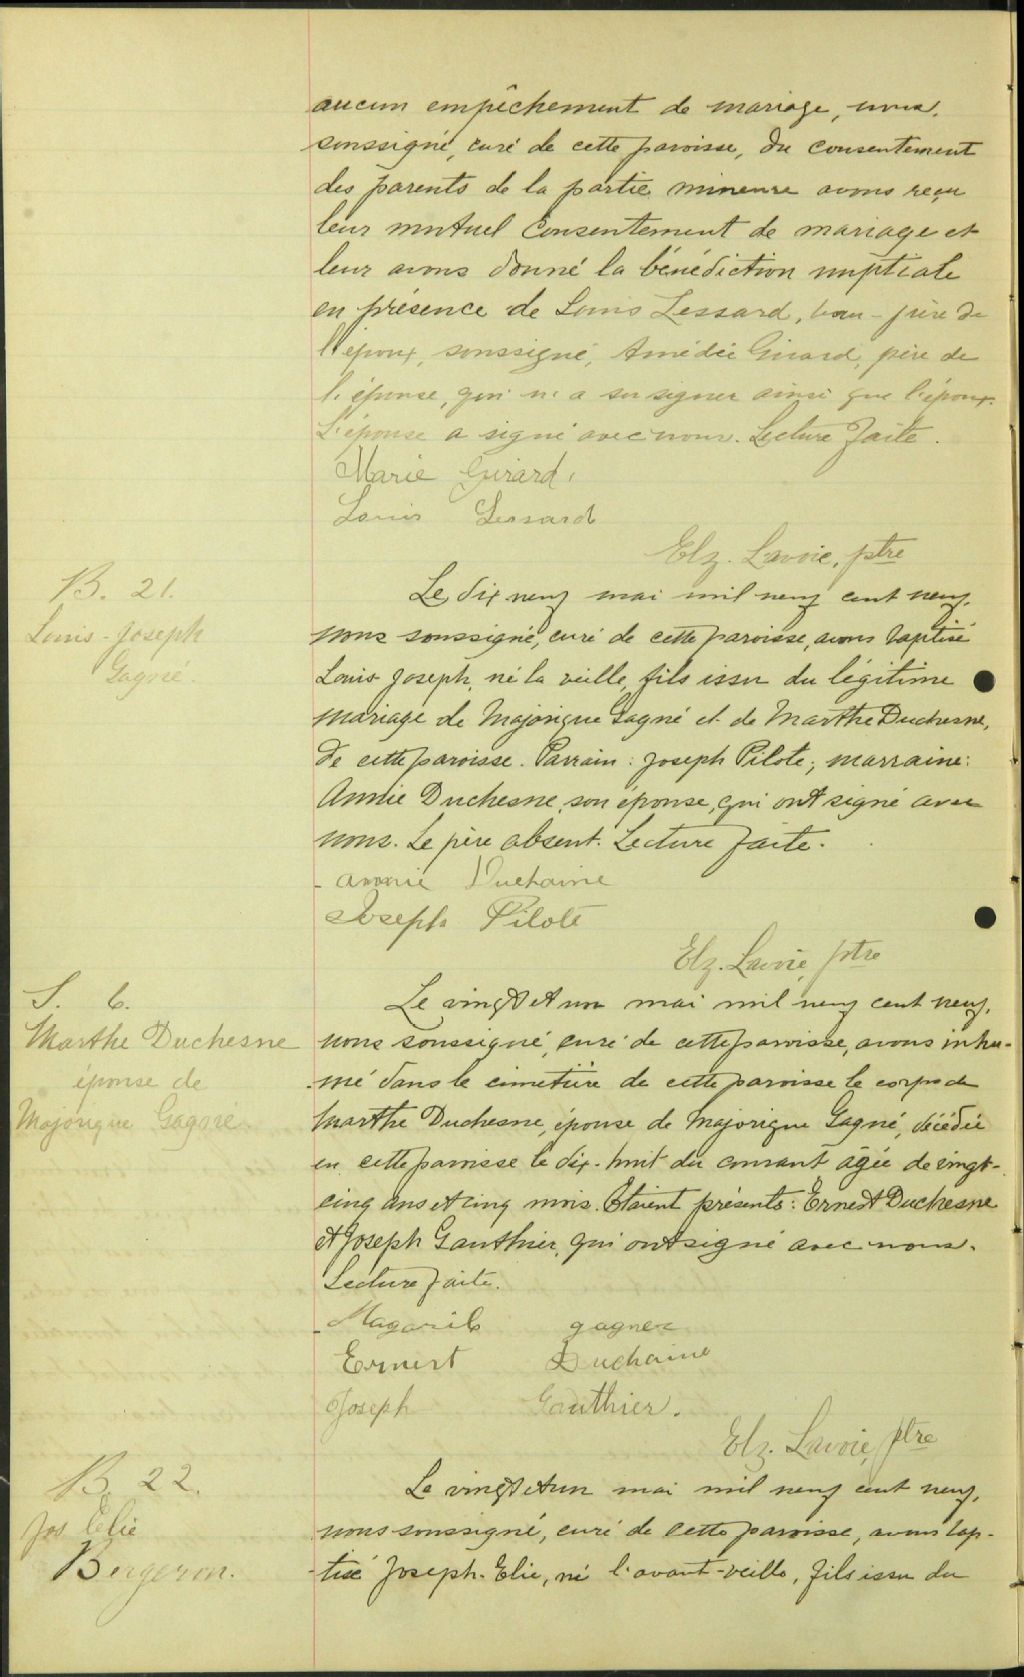 aucun empêchement de mariage, nous,
soussigné, curé de cette paroisse, du consentement
des parents de la partie mineure avons reçu
leur mutuel consentement de mariage et
leur avons donné la bénédiction nuptiale
en présence de Louis Lessard, beau-père de
l'époux, soussigné, Amédée Girard, père de
l'épouse, qui n'a su signer ainsi que l'époux.
L'épouse a signé avec nous. Lecture faite.
Marie Girard,
Louis Lessard
Elz. Lavoie, ptre
B. 21.
Louis-Joseph
Gagné.
Le dix neuf mai mil neuf cent neuf,
nous soussigné, curé de cette paroisse, avons baptisé
Louis-Joseph, né la veille, fils issu du légitime
mariage de Majorique Gagné et de Marthe Duchesne,
de cette paroisse. Parrain: Joseph Pilote; marraine:
Annie Duchesne, son épouse, qui ont signé avec
nous. Le père absent. Lecture faite.
Annie Duchaine
Joseph Pilote
Elz. Lavoie, ptre
S. 6.
Marthe Duchesne
épouse de
Majorique Gagné
Le vingt et un mai mil neuf cent neuf,
nous soussigné, curé de cette paroisse, avons inhu-
mé dans le cimetière de cette paroisse le corps de
Marthe Duchesne, épouse de Majorique Gagné, décédée
en cette paroisse le dix-huit du courant âgée de vingt-
cinq ans et cinq mois. Étaient présents: Ernest Duchesne
et Joseph Gauthier, qui ont signé avec nous.
Lecture faite.
gagner
Ernest Duchaine
Joseph Gauthier.
Elz. Lavoie, ptre
B. 22.
Jos Elie
Bergeron.
Le vingt et un mai mil neuf cent neuf,
nous soussigné, curé de cette paroisse, avons bap-
tisé Joseph-Elie, né l'avant-veille, fils issu du